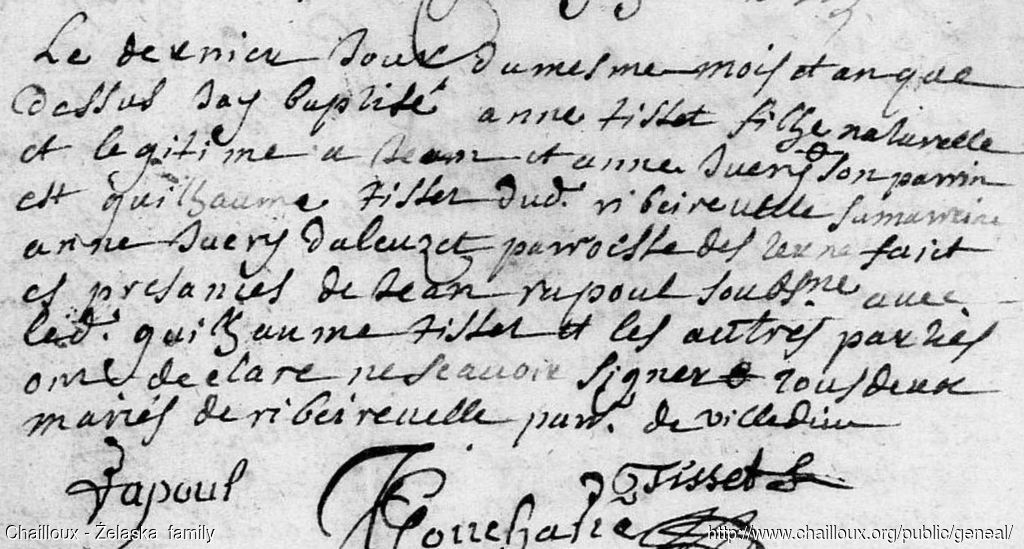 Le dernier Jour du mesme mois et an que
dessus Jay baptisé anne tisset filhe naturelle
et legitime a Jean et anne Juery son parrin
est guilhaume tisset dud. ribeirevelle sa marreine
anne Juery daleuzet parroisse des ternes faict
es presances de Jean rapoul soubsne avec
led. guilhaume tisset et les autres parties
ont declare ne scavoir signer tous deux
mariés de ribeirevelle parr. de villedieu
Rapoul
Tisset
Torrehatre
Chailloux - Żelaska family
http://www.chailloux.org/public/geneal/